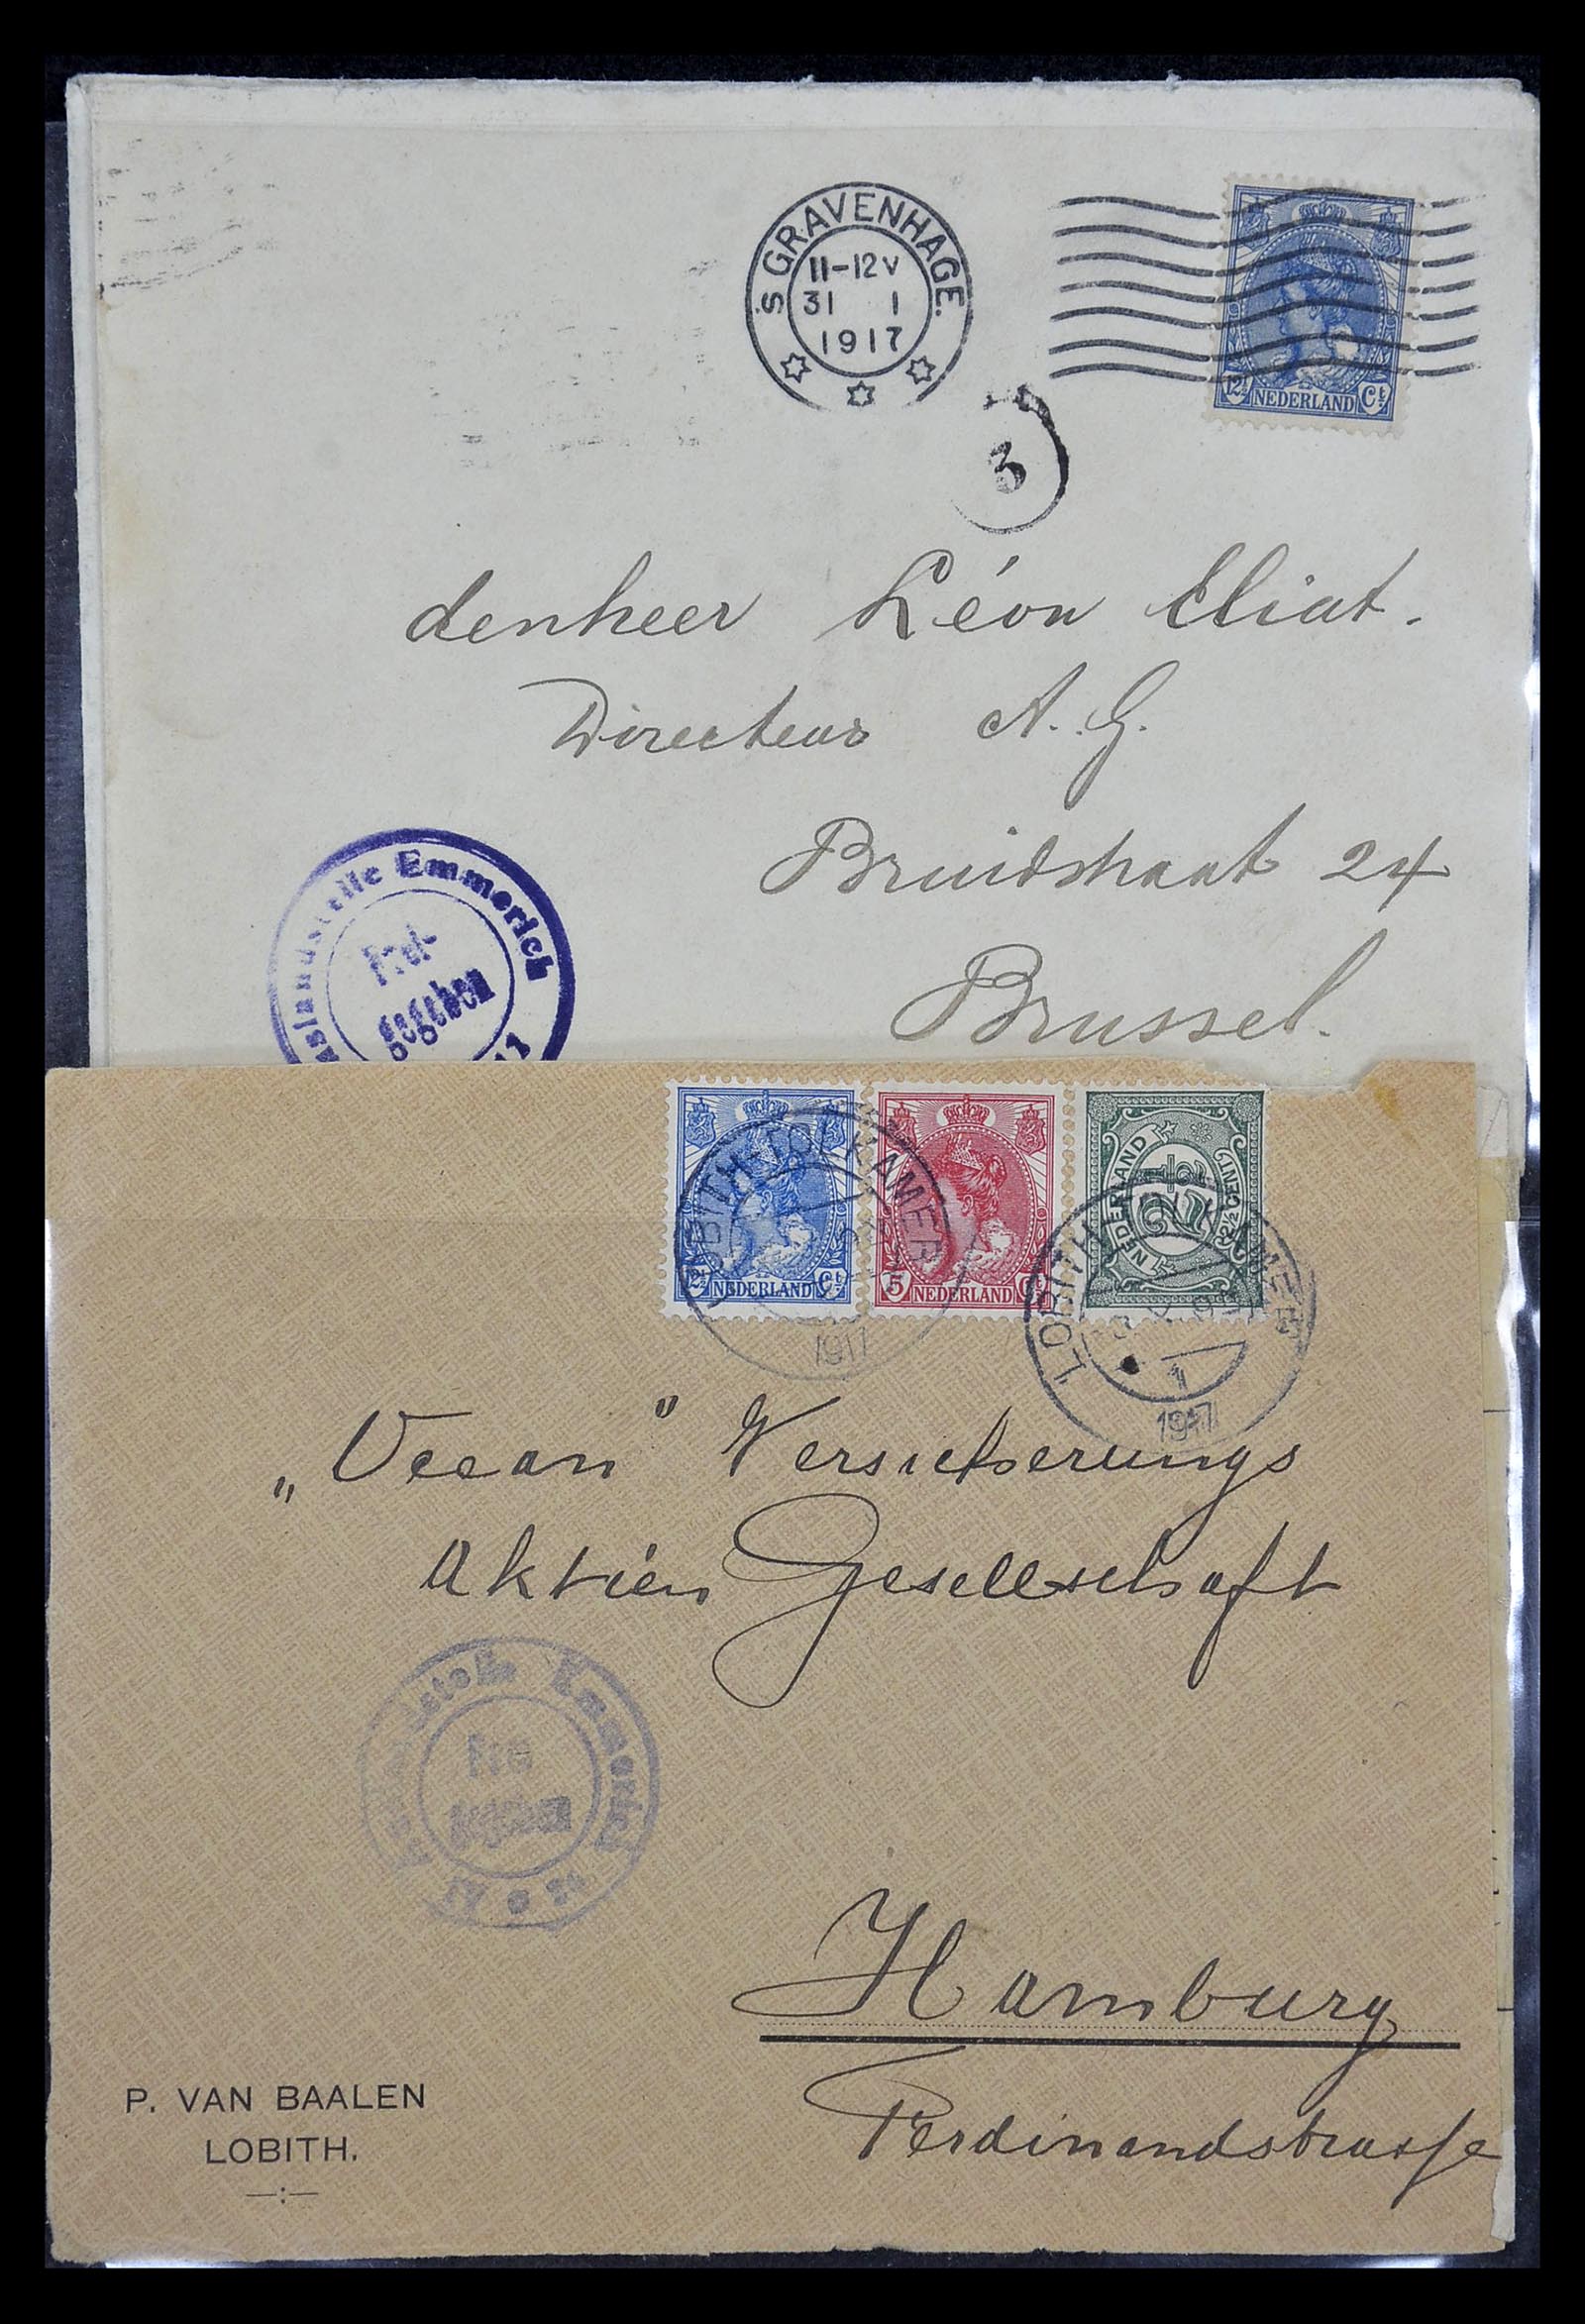 'S GRAVENHAGE.
11-12V
31 1
1917
12½ NEDERLAND Ct
3
denheer Léon Eliat.
Directeur A. G.
Bruidstraat 24
Brussel.
Auslandstelle Emmerich
Frei-
gegeben
NEDERLAND
5 NEDERLAND Ct
NEDERLAND 2½ CENT
2½
LOBITH-TOLKAMER
1917
LOBITH-TOLKAMER
1
1917
„Veean" Versicherungs
Aktien Gesellschaft
Emmerich
Frei
gegeben
Hamburg
Ferdinandstrasse
P. VAN BAALEN
LOBITH.